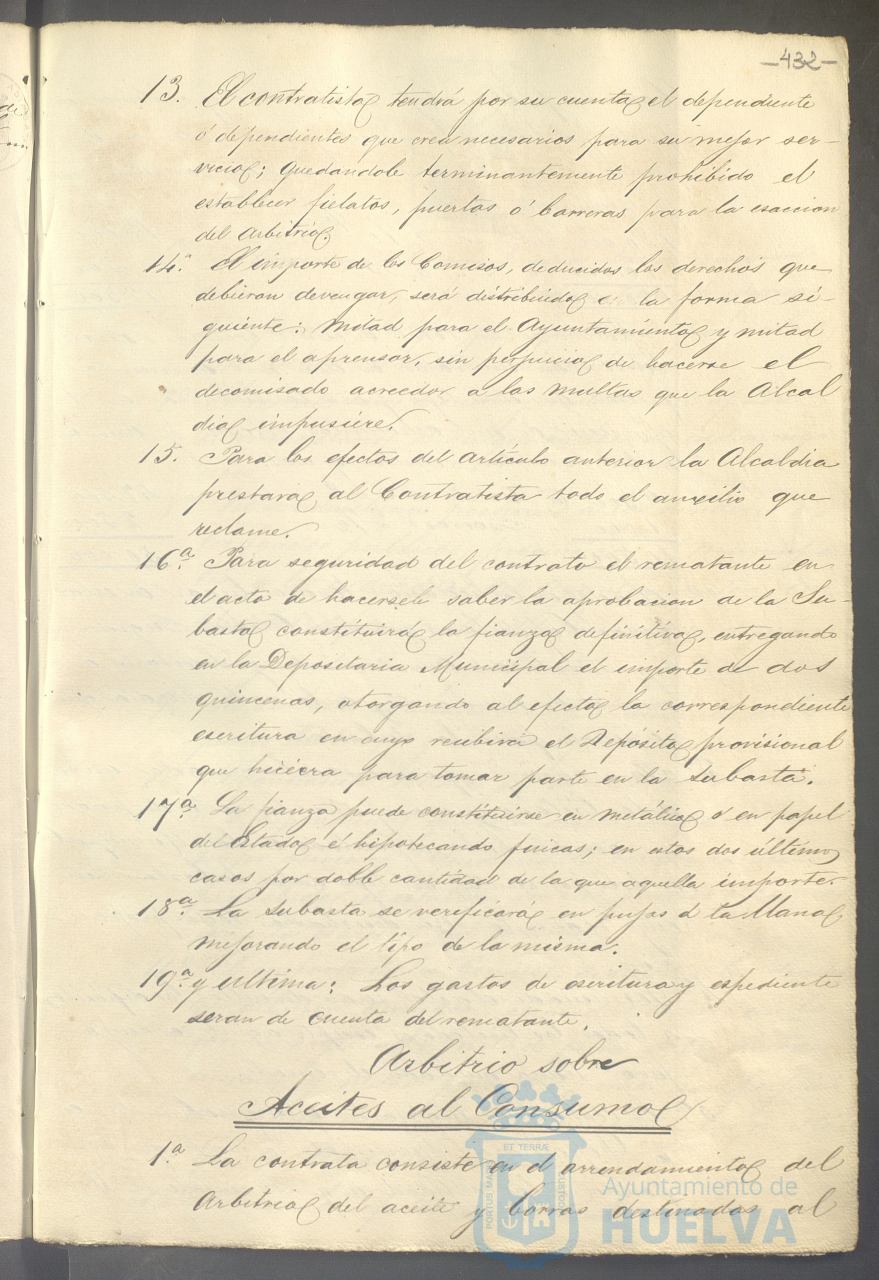 —432—
13. El contratista tendrá por su cuenta el dependiente
ó dependientes que crea necesarios para su mejor ser-
vicio; quedandole terminantemente prohibido el
establecer fielatos, puertas ó barreras para la esaccion
del Arbitrio.
14ª El importe de los Comisos, deducidos los derechos que
debieran devengar, será distribuido en la forma si-
guiente: mitad para el Ayuntamiento y mitad
para el aprensor, sin perjuicio de hacerse el
decomisado acreedor a las multas que la Alcal
dia impusiere.
15. Para los efectos del articulo anterior la Alcaldia
prestara al Contratista todo el auxilio que
reclame.
16ª Para seguridad del contrato el rematante en
el acto de hacersele saber la aprobacion de la Su-
basta constituirá la fianza definitiva, entregando
en la Depositaria Municipal el importe de dos
quincenas, otorgando al efecto la correspondiente
escritura en cuyo recibirá el Depósito provisional
que hiciera para tomar parte en la subasta.
17ª La fianza puede constituirse en metálico ó en papel
del Estado é hipotecando fincas; en estos dos últimos
casos por doble cantidad de la que aquella importe.
18ª La subasta se verificará en pujas á la llana
mejorando el tipo de la misma.
19ª y ultima: Los gastos de escritura y espediente
seran de cuenta del rematante.
Arbitrio sobre
Aceites al Consumo
1.ª La contrata consiste en el arrendamiento del
Arbitrio del aceite y borras destinados al
ET TERRÆ
PORTUS MARIS
CUSTODIA
Ayuntamiento de
HUELVA